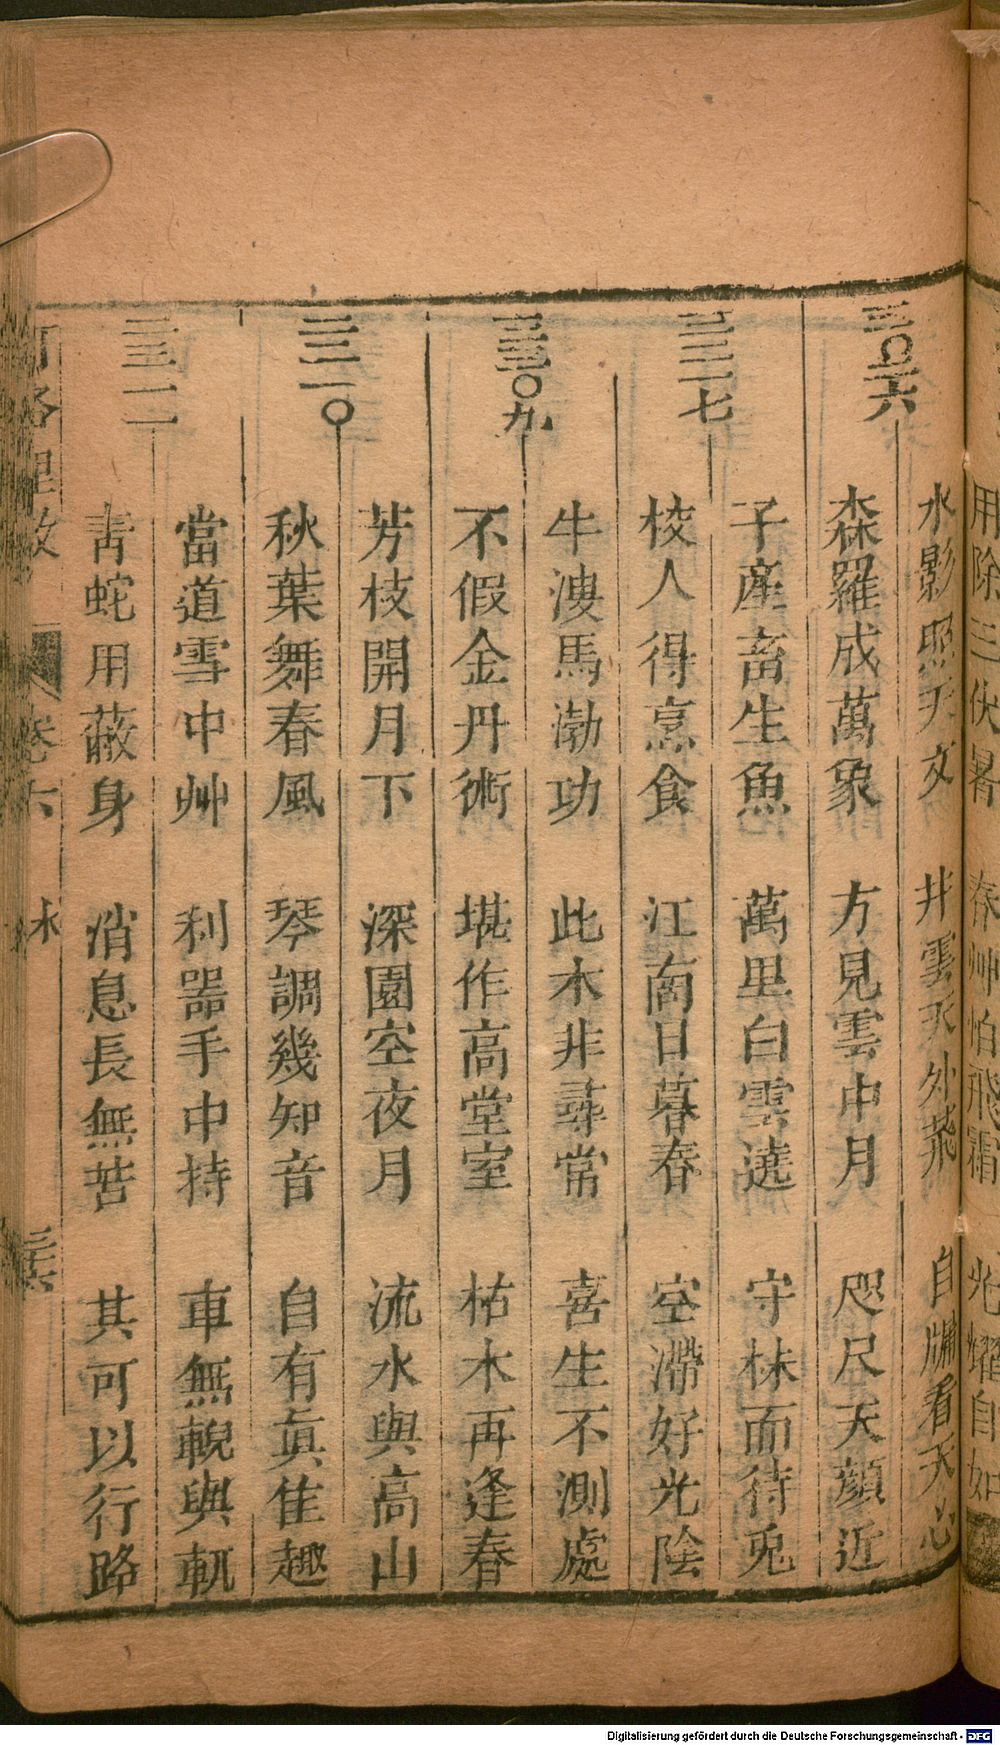 用除三伏暑 春艸怕飛霜 光耀自如
水影照天文 井雲天外飛 自牖看天心
三〇六 森羅成萬象 方見雲中月 咫尺天顔近
子產畜生魚 萬里白雲遶 守株而待兎
三三一七 校人得烹食 江南日暮春 空滯好光陰
牛溲馬渤功 此木非尋常 喜生不測處
三三〇九 不假金丹術 堪作高堂室 枯木再逢春
芳枝開月下 深園空夜月 流水與高山
三三一〇 秋葉舞春風 琴調幾知音 自有眞佳趣
當道雪中艸 利器手中持 車無輗與軏
三三一一 青蛇用蔽身 消息長無苦 其可以行路
卷六 三六
Digitalisierung gefördert durch die Deutsche Forschungsgemeinschaft - DFG